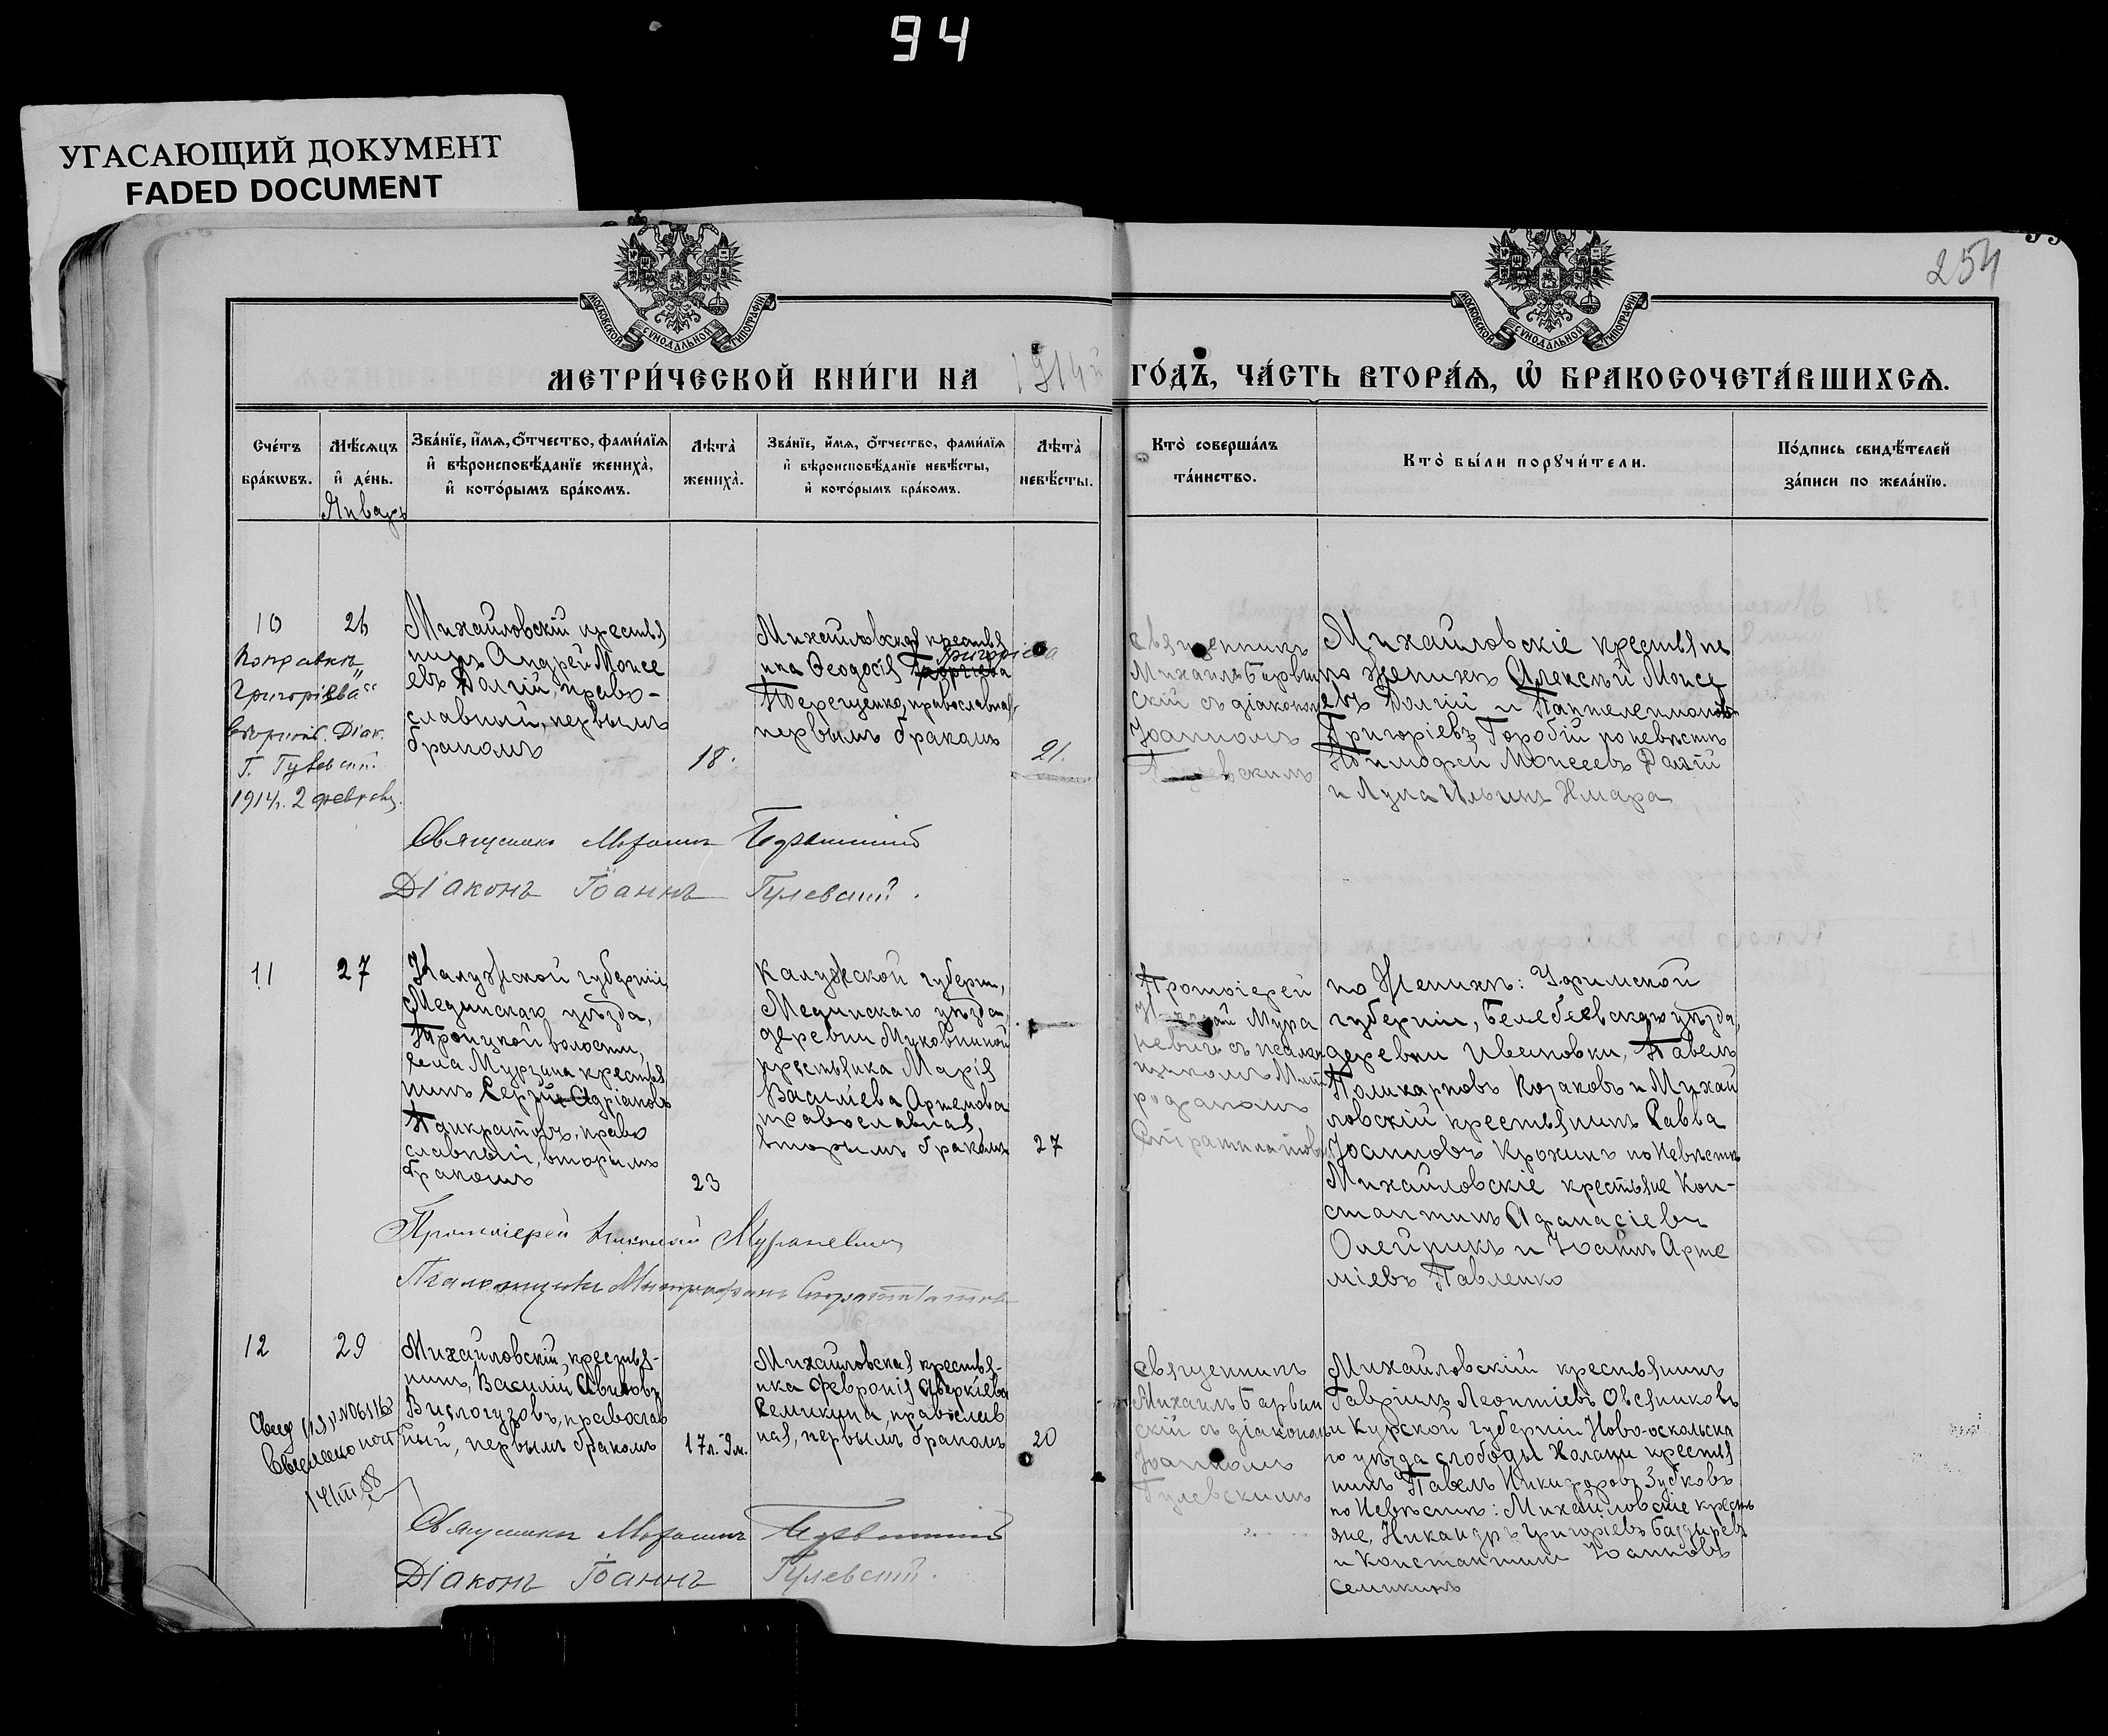 94
УГАСАЮЩИЙ ДОКУМЕНТ
FADED DOCUMENT
МОСКОВСКОЙ СѴНОДАЛЬНОЙ ТИПОГРАФІИ
МОСКОВСКОЙ СѴНОДАЛЬНОЙ ТИПОГРАФІИ
254
МЕТРИ́ЧЕСКОЙ КНИ́ГИ НА 1914й ГО́ДЪ, ЧА́СТЬ ВТОРА́Ѧ, Ѡ҆ БРАКОСОЧЕТА́ВШИХСѦ.
Сче́тъ бра́кѡвъ.
Мѣ́сѧцъ и҆ де́нь.
Январь
Зва́нїе, и҆́мѧ, ѻ҆́тчество, фами́лїѧ и҆ вѣроисповѣ́данїе жениха̀, и҆ кото́рымъ бра́комъ.
Лѣта̀ жениха̀.
Зва́нїе, и҆́мѧ, ѻ҆́тчество, фами́лїѧ и҆ вѣроисповѣ́данїе невѣ́сты, и҆ кото́рымъ бра́комъ.
Лѣта̀ невѣ́сты.
Кто̀ соверша́лъ та́инство.
Кто̀ бы́ли порꙋчи́тели.
По́дпись свидѣ́телей за́писи по жела́нїю.
10
26
Григоріева"
Діак.
Г. Гулевскій
1914г. 2 февр
Михайловскій крестья
нинъ Андрей Моисе
евъ Долгій, право-
славный, первымъ
бракомъ
18.
Михайловская крестья
Григоріева
нка Ѳеодосія
Терещенко, православная
первымъ бракомъ
21.
Священникъ
Михаилъ Барвин
скій съ діакономъ
Іоанномъ
Гулевскимъ
Михайловскіе крестьяне
по женихѣ Алексѣй Моисе
евъ Долгій и Пантелеимонъ
Григоріевъ Горобій по невѣстѣ
Тимофей Моисеевъ Долгій
и Лука Ильинъ
Священникъ Михаилъ Барвинскій
Діаконъ Іоаннъ Гулевскій.
11
27
Калужской губерніи,
Медынскаго уѣзда,
Троицкой волости,
села Мурзина крестья
нинъ Сергій Адріановъ
Панкратовъ, право
славный, вторымъ
бракомъ
23
Калужской губерн.,
Медынскаго уѣзда,
деревни Муковниной
крестьянка Марія
Васильева Артемова
православная,
вторымъ бракомъ
27
Протоіерей
Николай Мура
невичъ съ псалом
щикомъ Мит
рофаномъ
Стратилатовымъ
по Женихѣ: Уфимской
губерніи, Белебеевскаго уѣзда,
деревни Ивановки, Павелъ
Поликарповъ Козаковъ и Михай
ловскій крестьянинъ Савва
Іоанновъ Крохинъ по Невѣстѣ
Михайловскіе крестьяне Кон-
стантинъ Аѳанасіевъ
Олейникъ и Іоаннъ Арте
міевъ Павленко
Протоіерей Николай Мураневичъ
Псаломщикъ Митрофанъ Стратилатовъ
12
29
Михайловскій, крестья-
нинъ, Василій
Вислогузовъ, православ
ный, первымъ бракомъ
17л. 9м.
Михайловская крестья-
нка Февронія Аверкіева
Семикина, православ
ная, первымъ бракомъ
20
Священникъ
Михаилъ Барвин
скій съ діакономъ
Іоанномъ
Гулевскимъ
Михайловскій крестьянинъ
Гавріилъ Леонтіевъ Овсянниковъ
и Курской губерніи Ново-оскольска
го уѣзда слободы Холани крестья
нинъ Павелъ Никифоровъ Зубковъ
по Невѣстѣ: Михайловскіе кресть
яне, Никандръ Григорьевъ
и Константинъ Іоанновъ
Семикинъ
Священникъ Михаилъ Барвинскій
Діаконъ Іоаннъ Гулевскій.